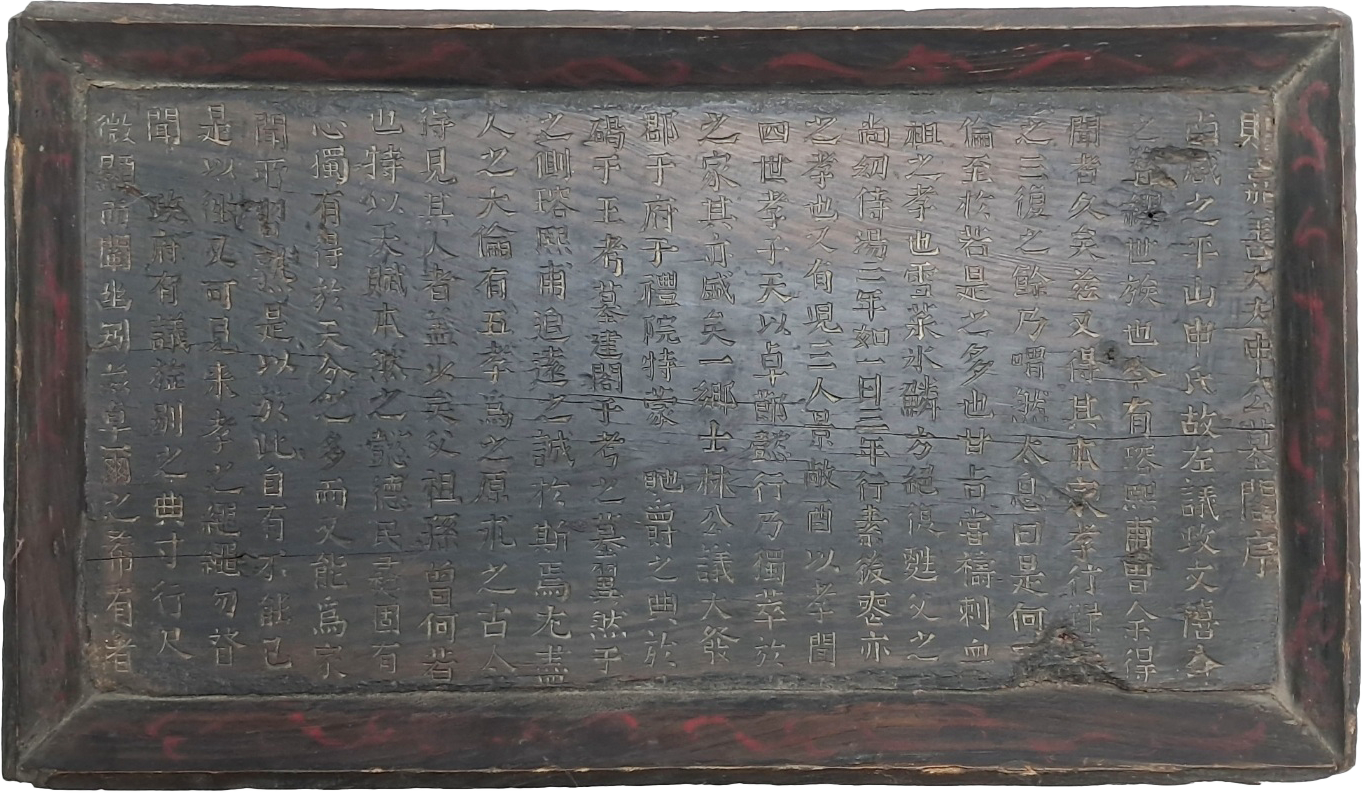 贈嘉善大夫申公墓閣序
咸之平山申氏故左議政文僖公
之 世族也今有瑢熙甫曾余得
聞者久矣玆又得其本家孝行
之三復之餘乃喟然太息曰是何
倫至於若是之多也甘占嘗禱刺血
祖之孝也雪菜氷鱗方絕復甦父之
尚幼侍湯三年如一日三年行素後喪亦
之孝也又有児三人景敵酉以孝聞
四世孝于天以卓節懿行乃獨萃於
之家其亦盛矣一鄉士林公議大發
郡于府于禮院特蒙 貤爵之典於
碣于王考墓建閣于考之墓翌然于
之側瑢熙甫追遠之誠於斯焉尤盡
人之大倫有五孝爲之原求之古今
得見其人者盖少矣父祖孫曾何若
也特以天賦本然之懿德民 固有
心獨有得於天分之多而又能爲家
聞 習熟是以於此自有不能已
是以 又可見来孝之繩繩勿替
聞 政府有議旌別之典寸行尺
微顯而闡幽矧玆卓爾之希有者